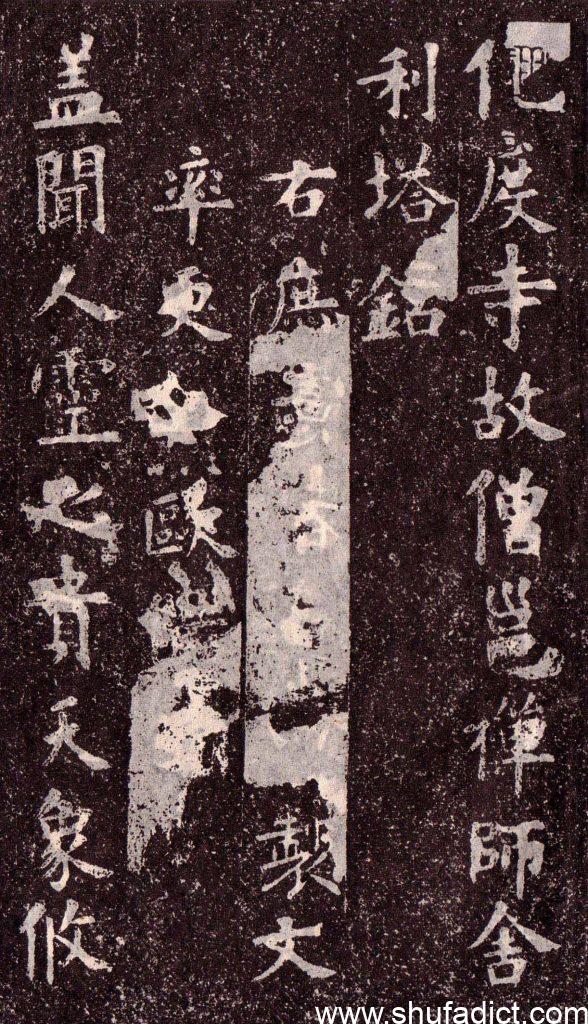 化度寺故僧邕禪師舍
利塔銘
右庶製文
率更歐
盖聞人靈之貴天象攸
www.shufadict.com